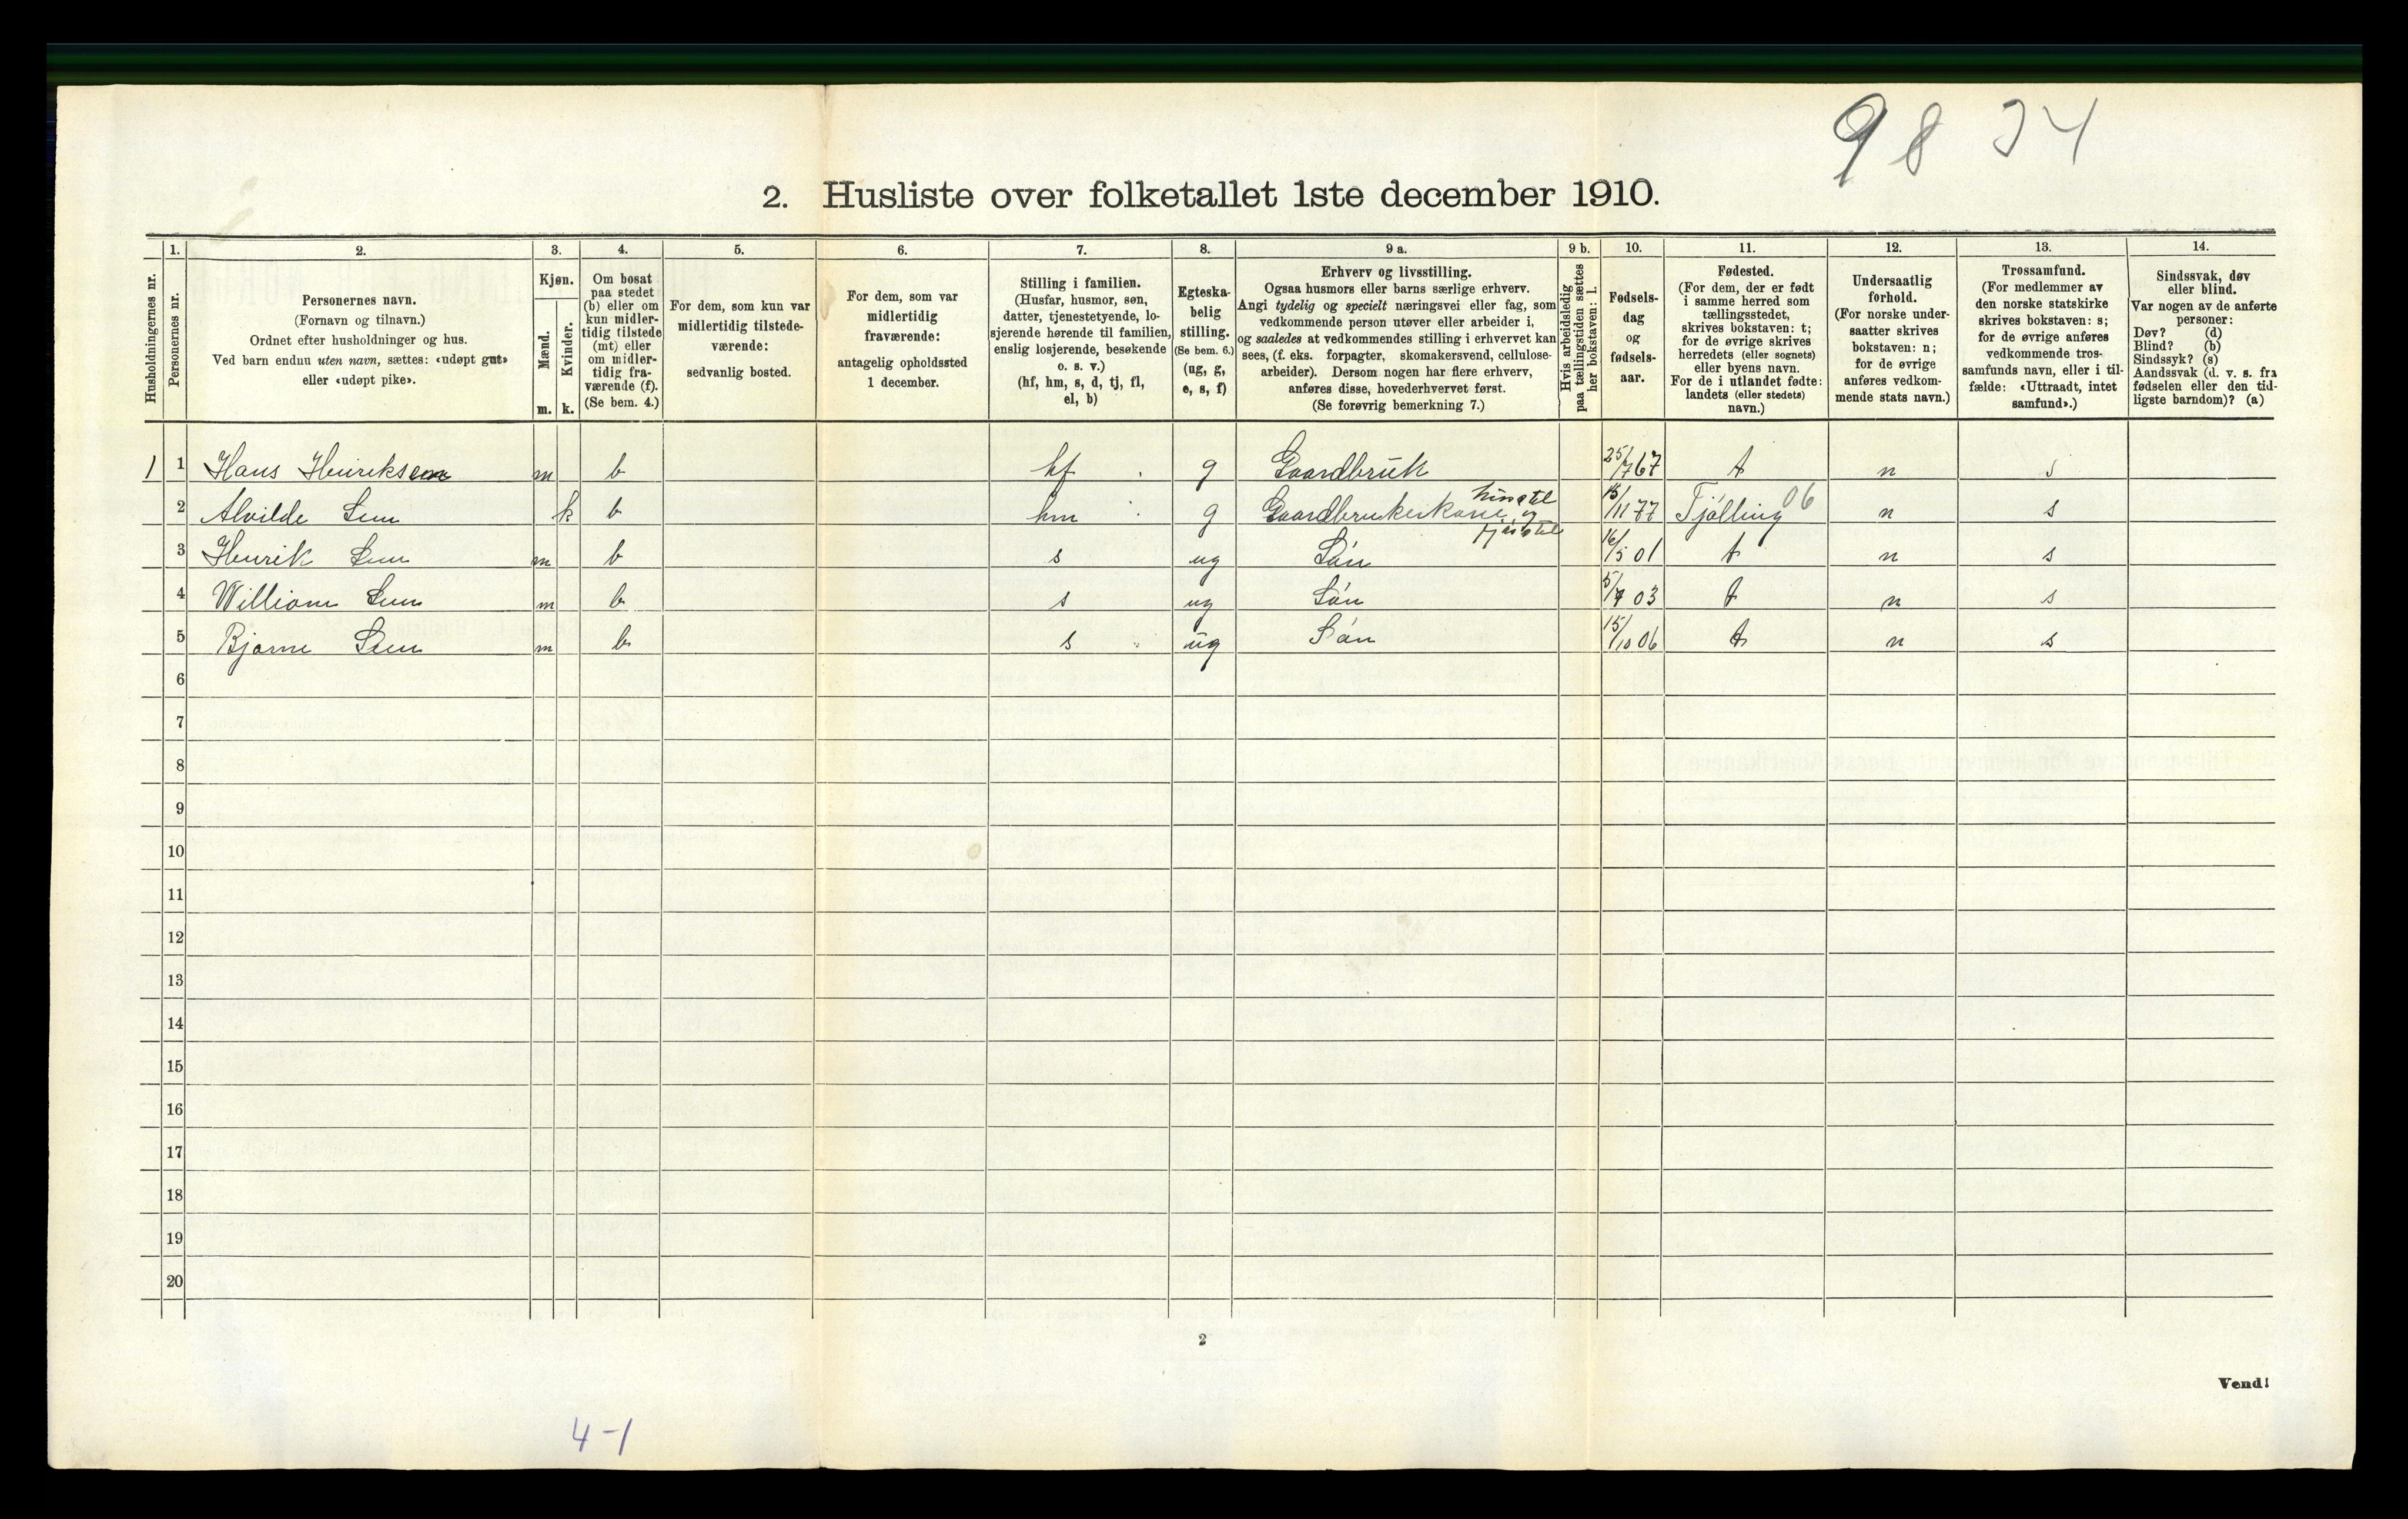 98 34
2. Husliste over folketallet 1ste december 1910.
Husholdningernes nr.
1.
Personernes nr.
2.
Personernes navn.
(Fornavn og tilnavn.)
Ordnet efter husholdninger og hus.
Ved barn endnu uten navn, sættes: «udøpt gut»
eller «udøpt pike».
3.
Kjøn.
Mænd.
Kvinder.
m. k.
4.
Om bosat
paa stedet
(b) eller om
kun midler-
tidig tilstede
(mt) eller
om midler-
tidig fra-
værende (f).
(Se bem. 4.)
5.
For dem, som kun var
midlertidig tilstede-
værende:
sedvanlig bosted.
6.
For dem, som var
midlertidig
fraværende:
antagelig opholdssted
1 december.
7.
Stilling i familien.
(Husfar, husmor, søn,
datter, tjenestetyende, lo-
sjerende hørende til familien,
enslig losjerende, besøkende
o. s. v.)
(hf, hm, s, d, tj, fl,
el, b)
8.
Egteska-
belig
stilling.
(Se bem. 6.)
(ug, g,
e, s, f)
9 a.
Erhverv og livsstilling.
Ogsaa husmors eller barns særlige erhverv.
Angi tydelig og specielt næringsvei eller fag, som
vedkommende person utøver eller arbeider i,
og saaledes at vedkommendes stilling i erhvervet kan
sees, (f. eks. forpagter, skomakersvend, cellulose-
arbeider). Dersom nogen har flere erhverv,
anføres disse, hovederhvervet først.
(Se forøvrig bemerkning 7.)
9 b.
Hvis arbeidsledig
paa tællingstiden sættes
her bokstaven: l.
10.
Fødsels-
dag
og
fødsels-
aar.
11.
Fødested.
(For dem, der er født
i samme herred som
tællingsstedet,
skrives bokstaven: t;
for de øvrige skrives
herredets (eller sognets)
eller byens navn.
For de i utlandet fødte:
landets (eller stedets)
navn.)
12.
Undersaatlig
forhold.
(For norske under-
saatter skrives
bokstaven: n;
for de øvrige
anføres vedkom-
mende stats navn.)
13.
Trossamfund.
(For medlemmer av
den norske statskirke
skrives bokstaven: s;
for de øvrige anføres
vedkommende tros-
samfunds navn, eller i til-
fælde: «Uttraadt, intet
samfund».)
14.
Sindssvak, døv
eller blind.
Var nogen av de anførte
personer:
Døv? (d)
Blind? (b)
Sindssyk? (s)
Aandssvak (d. v. s. fra
fødselen eller den tid-
ligste barndom)? (a)
1 1 Hans Henriksen m b hf g Gaardbruk 25/7 67 t n s
2 Alvilde Sem k b hm g Gaardbrukerkone og 15/11 77 Tjølling 06 n s
3 Henrik Sem m b s ug Søn 16/5 01 t n s
4 William Sem m b s ug Søn 03 t n s
5 Bjarne Sem m b s ug Søn 15/10 06 t n s
6
7
8
9
10
11
12
13
14
15
16
17
18
19
20
2
Vend!
4-1